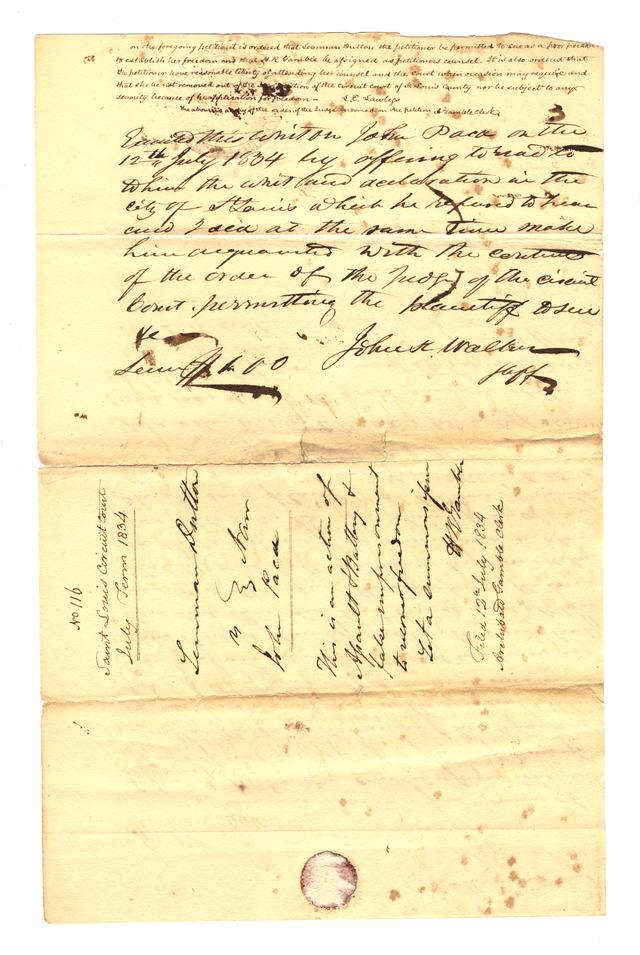 on the foregoing petition it is ordered that Leanman Dutton the petitioner be permitted to sue as a poor person
to establish her freedom and that H R Gamble be assigned as petitioners counsel. It is also ordered that
the petitioner have reasonable liberty of attending her counsel and the Court when occasion may require and
that she be not removed out of the jurisdiction of the circuit court of St Louis County nor be subject to any
severity because of her application for freedom — L. E. Lawless
The above is a copy of the order of the Judge indorsed on the petition A Gamble Clerk
Executed this Writ on John Paca on the
12th July 1834 by offering to read to
to him the writ and declaration in the
city of St Louis which he refused to hear
and I did at the same time make
him acquainted with the contents
of the order of the Judge of the circuit
Court permitting the plaintiff to sue
&c
Serv $1.00 John K. Walker
Shff
No 116
Saint Louis Circuit Court
July Term 1834
Leanman Dutton
vs Narr
John Paca
This is an action of
Assault & Battery &
false imprisonment
to recover freedom
Let a summons issue
Filed 12th July 1834
Archibald Gamble Clerk